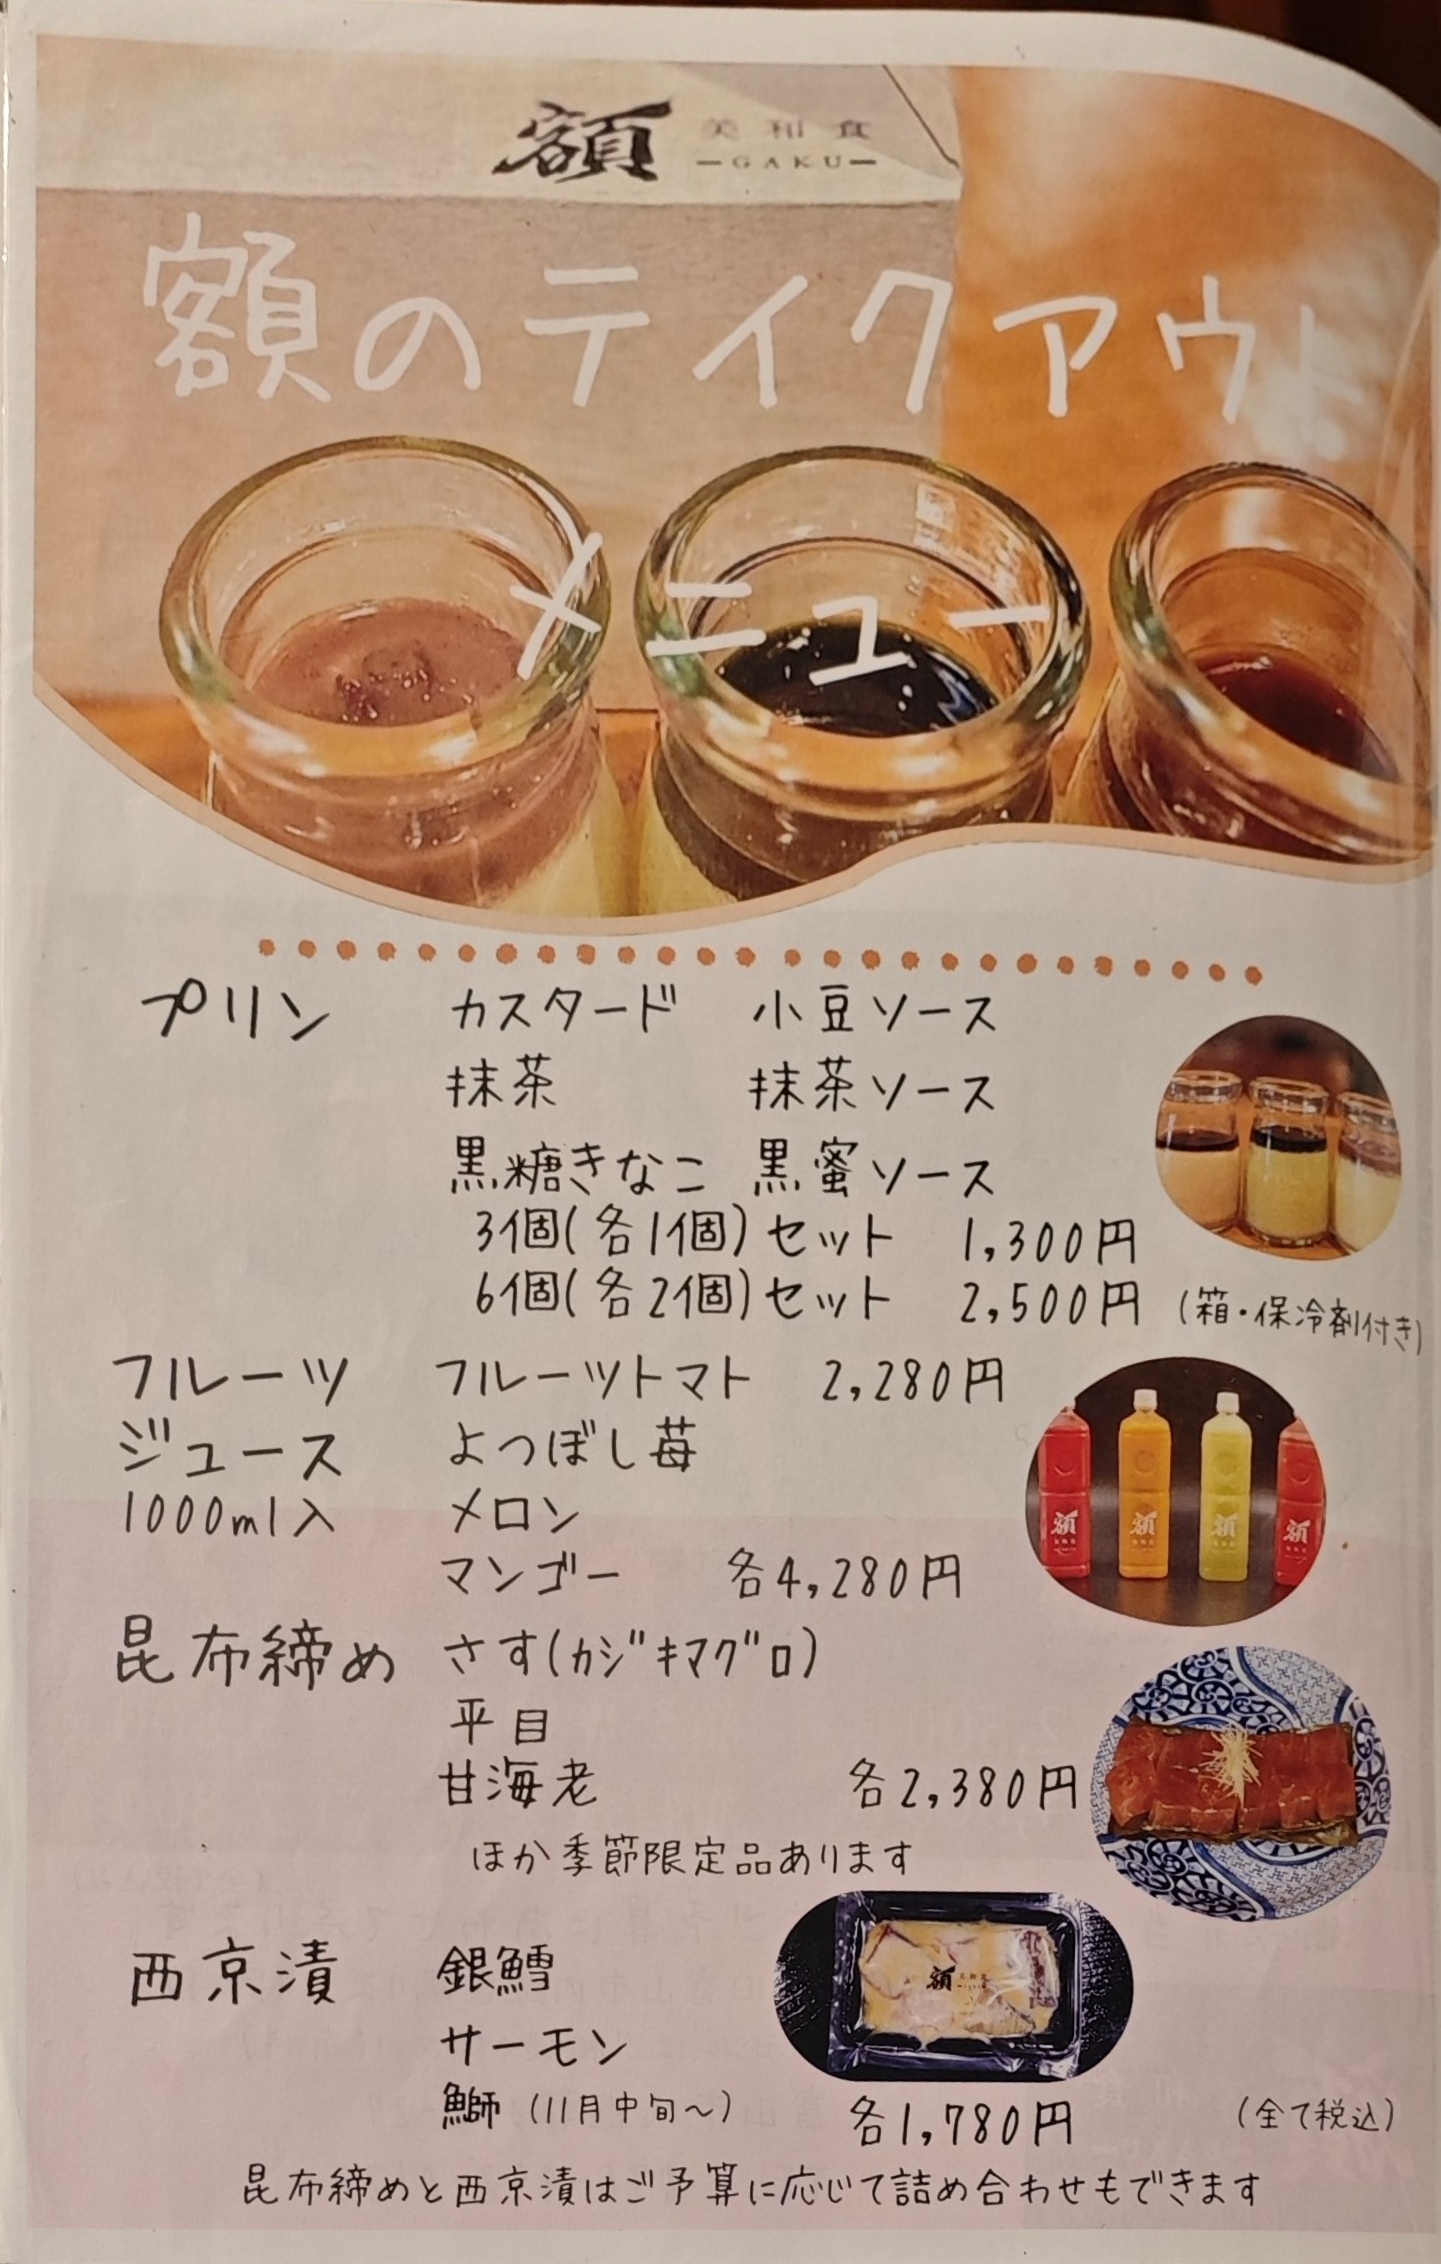 額 美和食
GAKU
額のテイクアウト
メニュー
プリン カスタード 小豆ソース
抹茶 抹茶ソース
黒糖きなこ 黒蜜ソース
3個(各1個)セット 1,300円
6個(各2個)セット 2,500円 (箱・保冷剤付き)
フルーツ フルーツトマト 2,280円
ジュース よつぼし苺
1000ml入 メロン
マンゴー 各4,280円
昆布締め さす(カジキマグロ)
平目
甘海老 各2,380円
ほか季節限定品あります
西京漬 銀鱈
サーモン
鰤 (11月中旬～) 各1,780円 (全て税込)
昆布締めと西京漬はご予算に応じて詰め合わせもできます
額
額
額
額
額